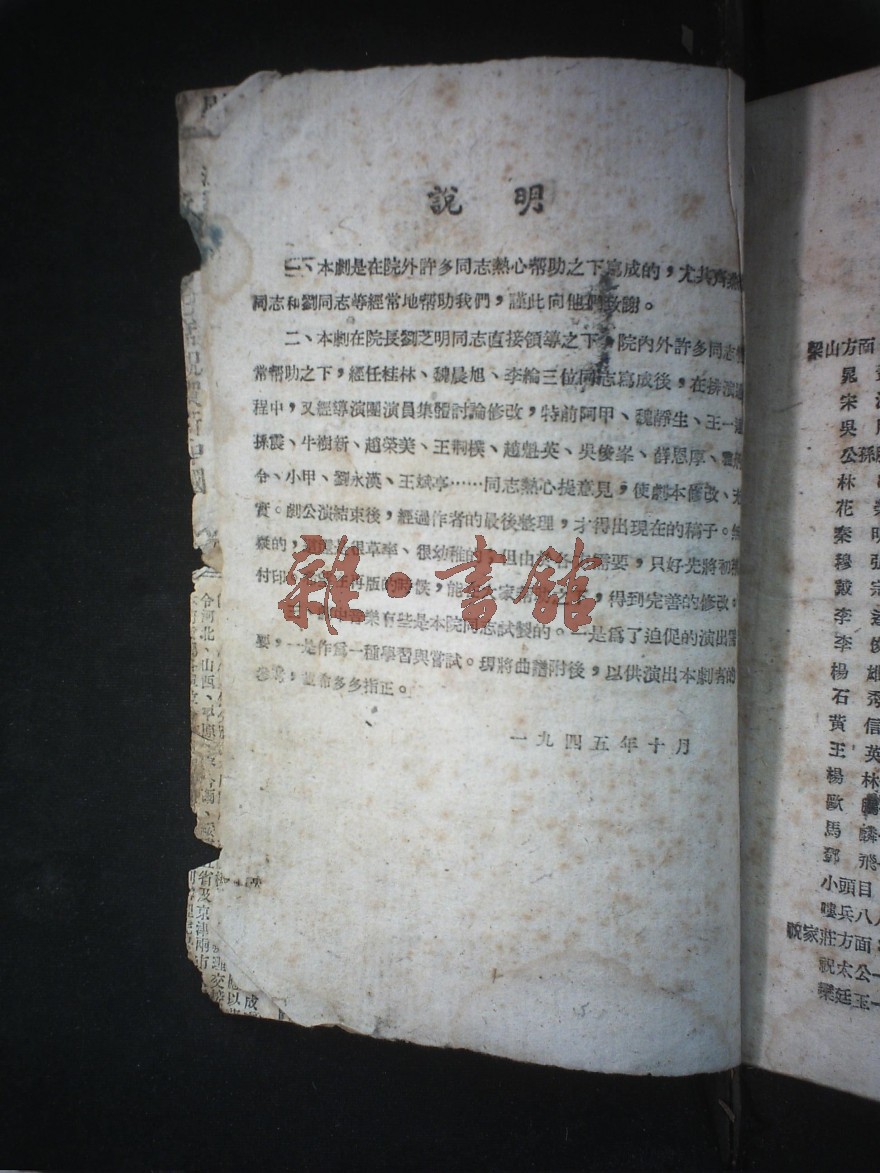 說 明
一、本劇是在院外許多同志熱心幫助之下寫成的，尤其齊燕
同志和劉同志等經常地幫助我們，謹此向他們致謝。
二、本劇在院長劉芝明同志直接領導之下，院內外許多同志
常幫助之下，經任桂林、魏晨旭、李綸三位同志寫成後，在排演過
程中，又經導演團演員集體討論修改，特前阿甲、魏靜生、王一達
孫震、牛樹新、趙榮美、王桐樸、趙魁英、吳俊峯、薛恩厚、
令、小甲、劉永漢、王斌亭……同志熱心提意見，使劇本修改、充
實。劇公演結束後，經過作者的最後整理，才得出現在的稿子。
疑的，還是很草率、很幼稚的，但由於各地需要，只好先將初稿
付印，在再版的時候，能大家之下，得到完善的修改。
三、音樂有些是本院同志試製的。一是爲了迫促的演出需
要，一是作爲一種學習與嘗試。現將曲譜附後，以供演出本劇者的
參考，並希多多指正。
一九四五年十月
雜·書館
梁山方面
晁
宋
吳
公孫
林
花 榮
秦 明
穆 弘
戴 宗
李 逵
李 俊
楊 雄
石 秀
黃 信
王 英
楊 林
歐 鵬
馬 麟
鄧 飛
小頭目
嘍兵八
祝家莊方面
祝太公
欒廷玉
令河北、山西、
省及京津兩市